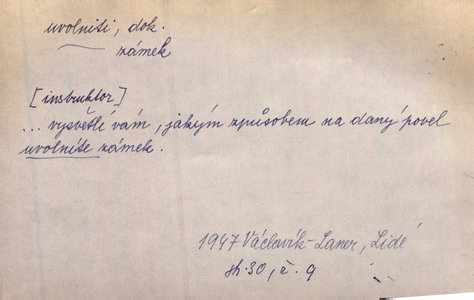 uvolniti, dok.
zámek
[instruktor]
... vysvětlí vám, jakým způsobem na daný povel
uvolníte zámek.
1947 Václavík-Laner, Lidé
sh. 30, č. 9